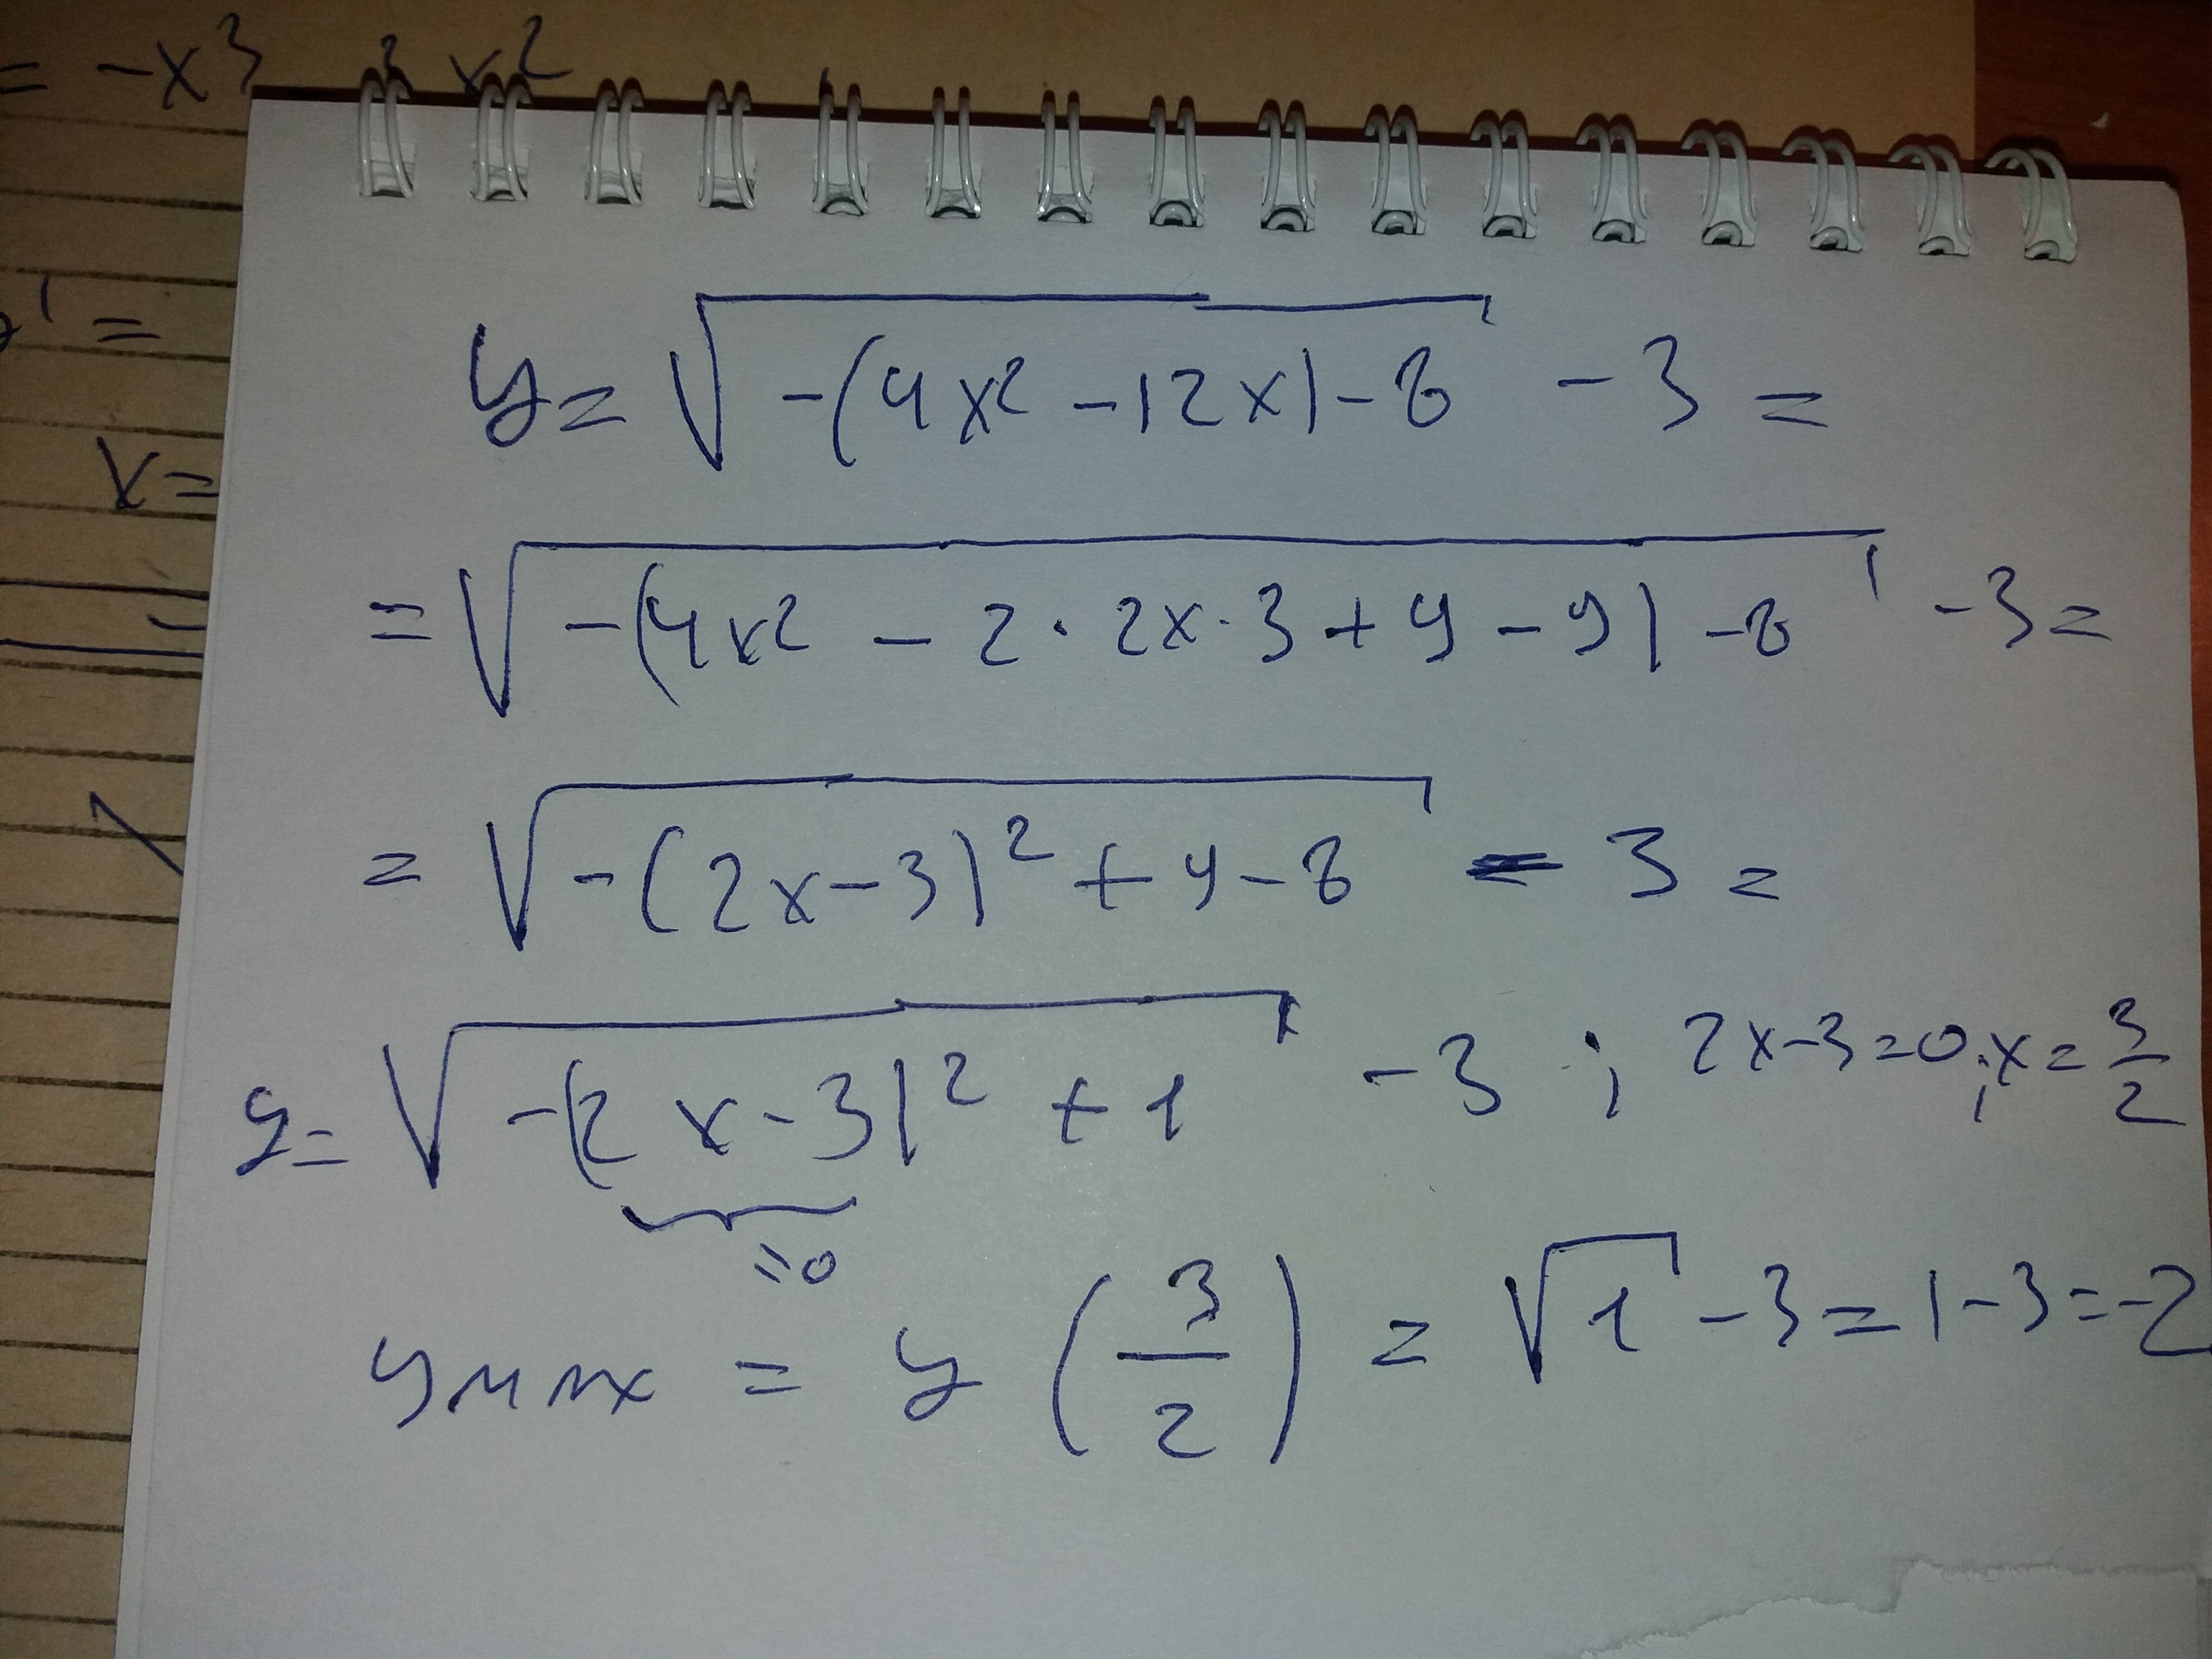 = -x³ x²
y = √(-(4x² - 12x) - 8) - 3 =
' =
x =
= √(-(4x² - 2 · 2x · 3 + 9 - 9) - 8) - 3 =
= √(-(2x - 3)² + 9 - 8) - 3 =
y = √(-(2x - 3)² + 1) - 3 ; 2x - 3 = 0; x = 3/2
= 0
y max = y (3/2) = √1 - 3 = 1 - 3 = -2